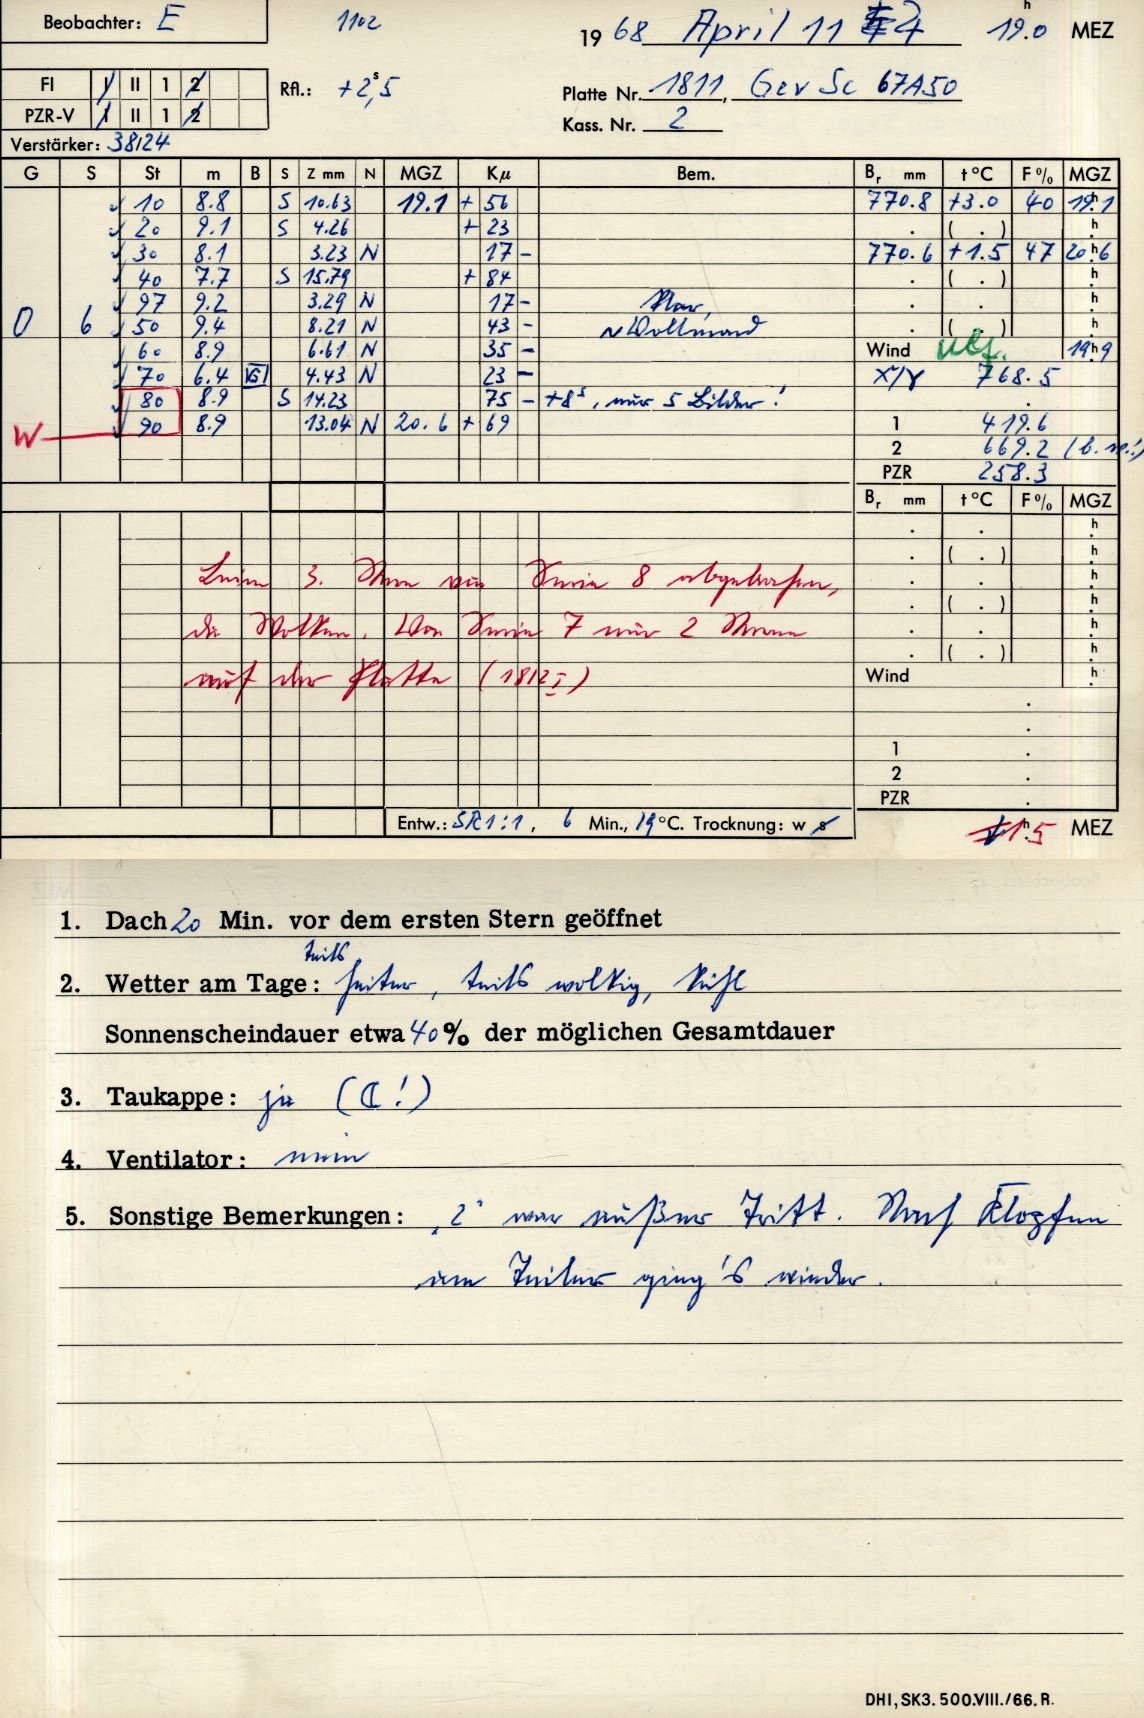 Beobachter: E 1102 1968 April 11 19.0 h MEZ
FI I II 1 2 Rfl.: +2,5 s Platte Nr. 1811, Gev Sc 67A50
PZR-V I II 1 2 Kass. Nr. 2
Verstärker: 38/24
G S St m B S Z mm N MGZ Kμ Bem. Br mm t °C F % MGZ
10 8.8 S 10.63 19.1 + 56 770.8 +3.0 40 19h1
20 9.1 S 4.26 + 23 . ( . ) h
30 8.1 3.23 N 17 - 770.6 +1.5 47 20h6
40 7.7 S 15.79 + 84 . ( . ) h
97 9.2 3.29 N 17 - Klar, . . h
0 6 50 9.4 8.21 N 43 - ~Vollmond . ( . ) h
60 8.9 6.61 N 35 - Wind 19h9
70 6.4 4.43 N 23 - X/Y 768.5
80 8.9 S 14.23 75 - +8s, nur 5 Bilder!
W 90 8.9 13.04 N 20.6 + 69 1 419.6
2 669.2
PZR 258.3
Br mm t °C F % MGZ
. . h
. ( . ) h
Beim 3. Stern von Serie 8 abgebrochen,
. . h
. ( . ) h
da Wolken. Von Serie 7 nur 2 Sterne
. . h
. ( . ) h
auf der Platte (1812I)
Wind h
.
.
1 .
2 .
PZR .
Entw.: SR1:1, 6 Min., 19°C. Trocknung: w s h.5 MEZ
1. Dach 20 Min. vor dem ersten Stern geöffnet
teils
2. Wetter am Tage: heiter, teils wolkig, kühl
Sonnenscheindauer etwa 40% der möglichen Gesamtdauer
3. Taukappe: ja (☾!)
4. Ventilator: nein
5. Sonstige Bemerkungen: „2" war außer Tritt. Nach Klopfen
am Teiler ging's wieder.
DHI, SK3. 500.VIII./66. R.